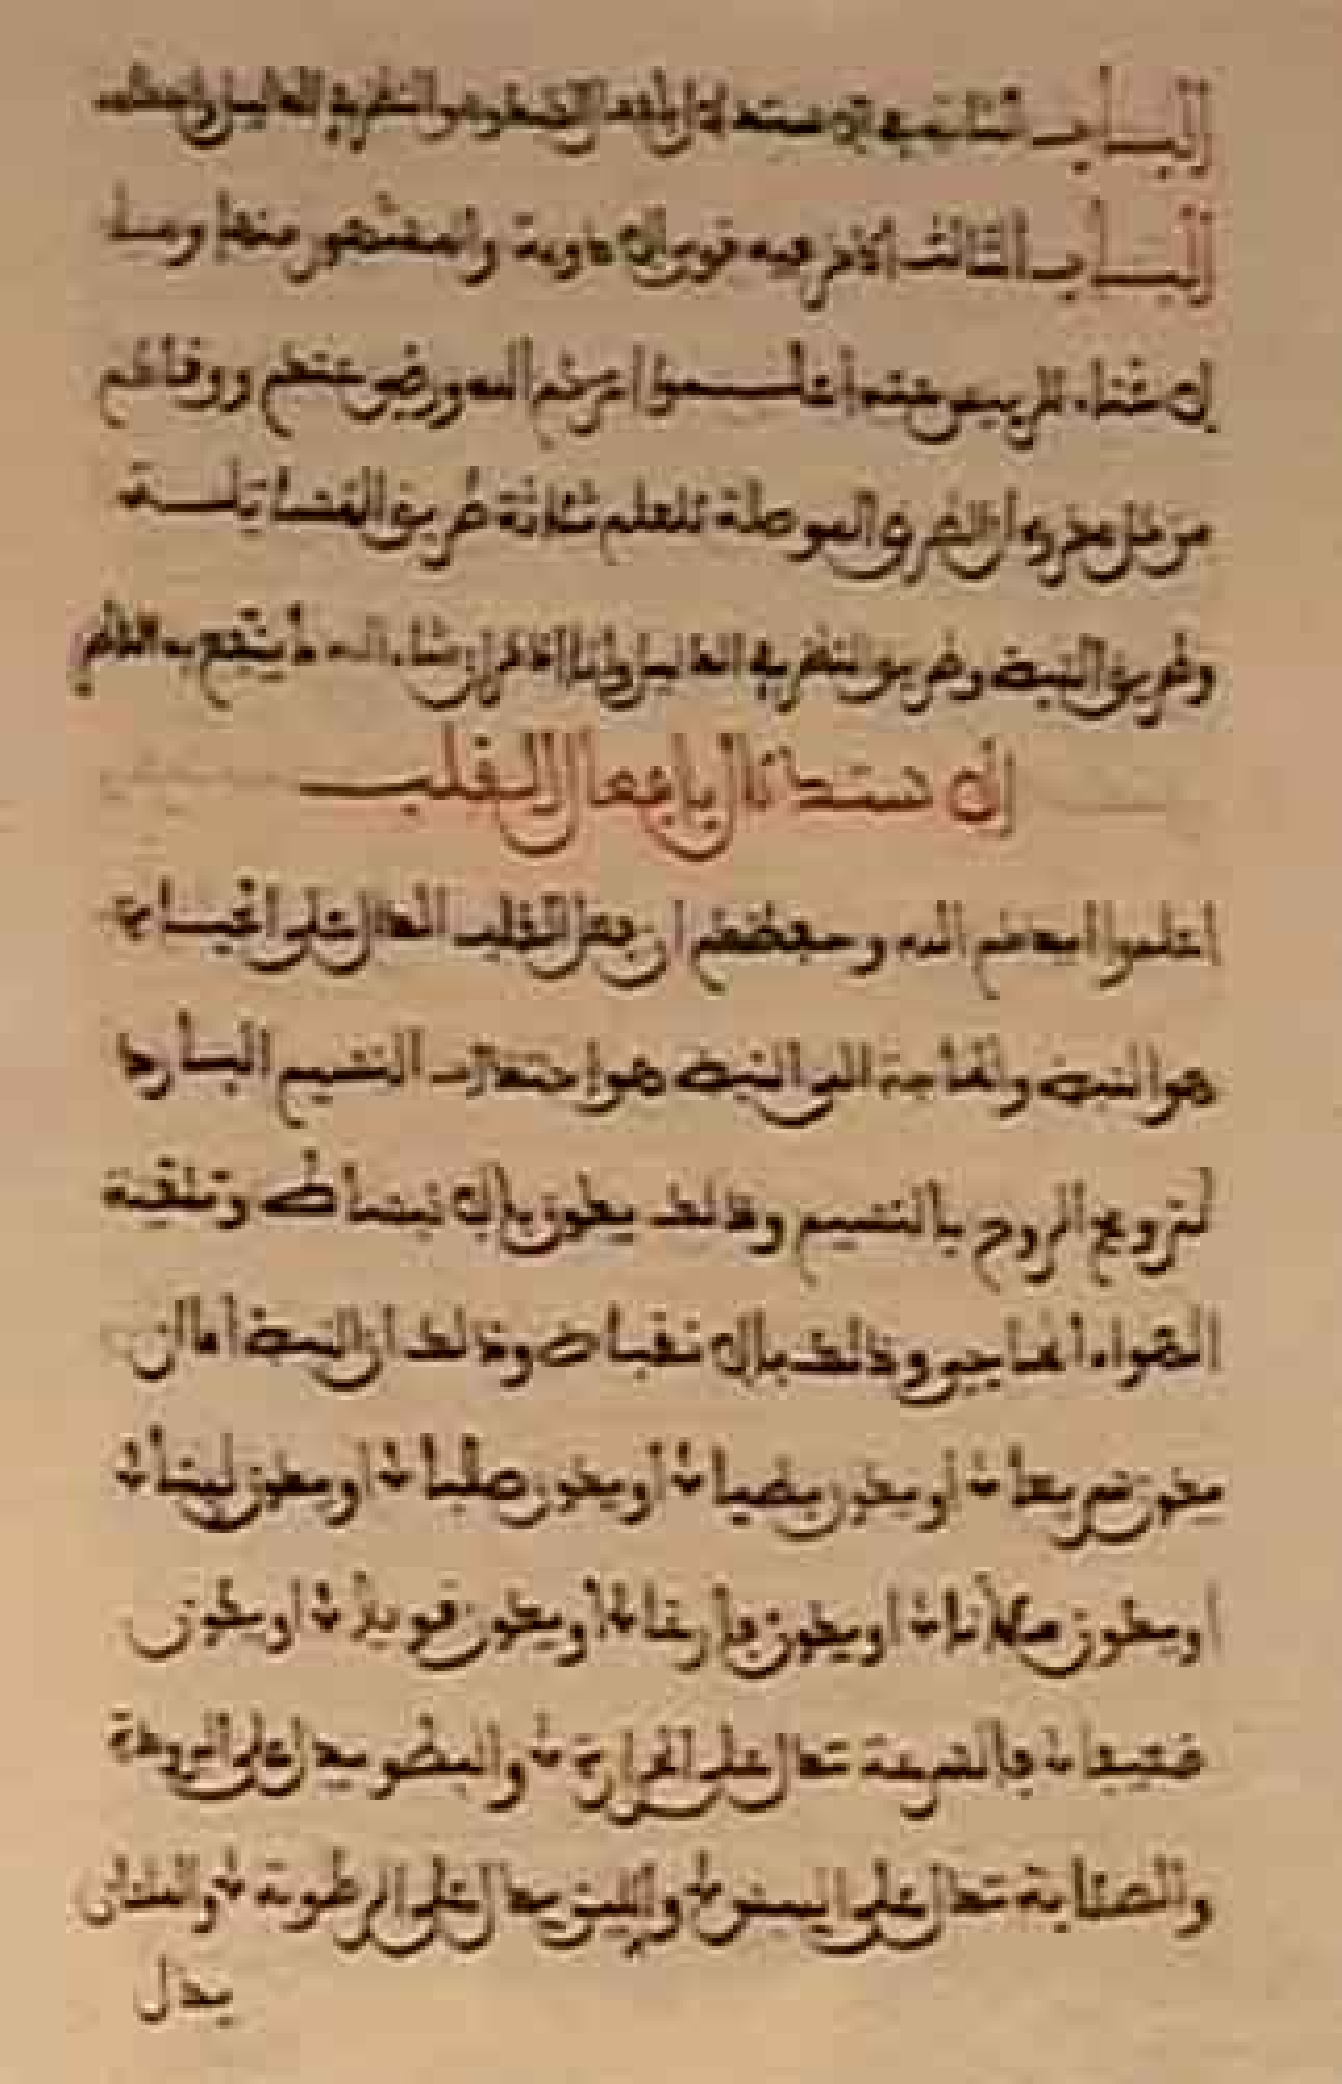 الباب الثاني في الاستدلال بأفعال والنظر في الدليل
الباب الثالث اذكر فيه قوى الادوية والمشهور منها وما
الاعتناء اعلموا اعزكم الله ورضي عنكم ووقاكم
من كل مكروه ان الطرق الموصلة للعلم ثلاثة طريق
وطريق النبض وطريق النظر في الدليل وانا اذكر ان شاء الله ما ينتفع به الناظر
الاستدلال بافعال القلب
اعلموا اسعدكم الله وحفظكم ان فعل القلب الدال على
هو النبض والحاجة الى النبض هو اجتذاب النسيم البارد
لترويح الروح بالنسيم وذلك يكون بالانبساط وتنقية
الهواء وذلك بالانقباض وذلك ان النبض اما ان
يكون سريعا او يكون بطيا او يكون صلبا او يكون لينا
او يكون ملانا او يكون فارغا او يكون قويا او يكون
ضعيفا فالسرعة تدل على الحرارة والبطو يدل على البرودة
والصلابة تدل على اليبس واللين يدل على الرطوبة والملان
يدل